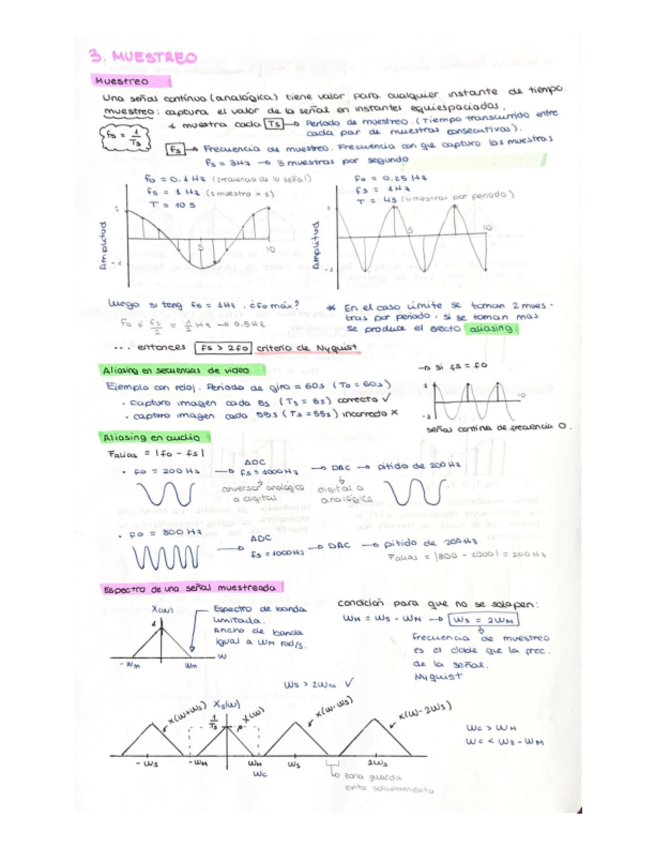 3. MUESTREO
Muestreo
Una señal continua (analógica) tiene valor para cualquier instante de tiempo.
muestreo: captura el valor de la señal en instantes equiespaciados.
1 muestra cada Ts → Período de muestreo. (Tiempo transcurrido entre
cada par de muestras consecutivas).
fs = 1/Ts
fs → Frecuencia de muestreo. Frecuencia con que capturo las muestras
fs = 3Hz → 3 muestras por segundo
fo = 0.1 Hz (frecuencia de la señal)
fs = 1 Hz (1 muestra x s)
T = 10 s
fo = 0.25 Hz
fs = 1Hz
T = 4s (4 muestras por periodo)
Amplitud
1
-1
5
10
Amplitud
1
-1
5
10
Luego si teng fs = 1Hz, ¿fo máx?
fo ≤ fs/2 = 1/2 Hz → 0.5Hz
* En el caso límite se toman 2 mues-
tras por periodo, si se toman mas
se produce el efecto aliasing.
... entonces fs > 2fo criterio de Nyquist
Aliasing en secuencias de video
Ejemplo con reloj. Periodo de giro = 60s (To = 60s)
· capturo imagen cada 5s (Ts = 5s) correcto ✓
· capturo imagen cada 55s (Ts = 55s) incorrecto x
→ si fs = fo
1
-1
10
señal continua de frecuencia 0.
Aliasing en audio
Falias = |fo - fs|
· fo = 200 Hz → ADC fs = 1000Hz → DAC → pitido de 200Hz
conversor analógico
a digital
digital a
analógica
· fo = 800 Hz → ADC fs = 1000Hz → DAC → pitido de 200Hz
Falias = |800 - 1000| = 200Hz
Espectro de una señal muestreada
X(w)
1
-wm
wm
w
Espectro de banda
limitada.
Ancho de banda
igual a wm rad/s.
condición para que no se solapen:
wm = ws - wm → ws = 2wm
frecuencia de muestreo
es el doble que la frec.
de la señal.
Nyquist
ws > 2wm ✓
x(w+ws)
Xs(w)
1/Ts
x(w)
x(w-ws)
x(w-2ws)
-ws
-wm
wm
wc
ws
2ws
zona guarda
anta solapamiento
wc > wm
wc < ws - wm